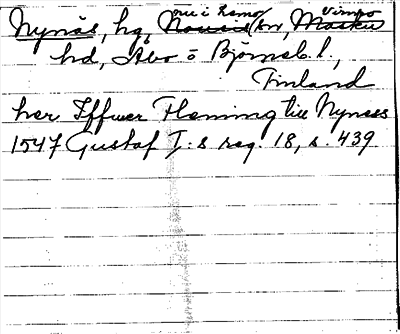 Nynäs, hg, Nousis hr, Masku
hd, Åbo o Björneb. l.,
Finland
her Iffwer Fleming till Nynees
1547 Gustaf I:s reg. 18, s. 439